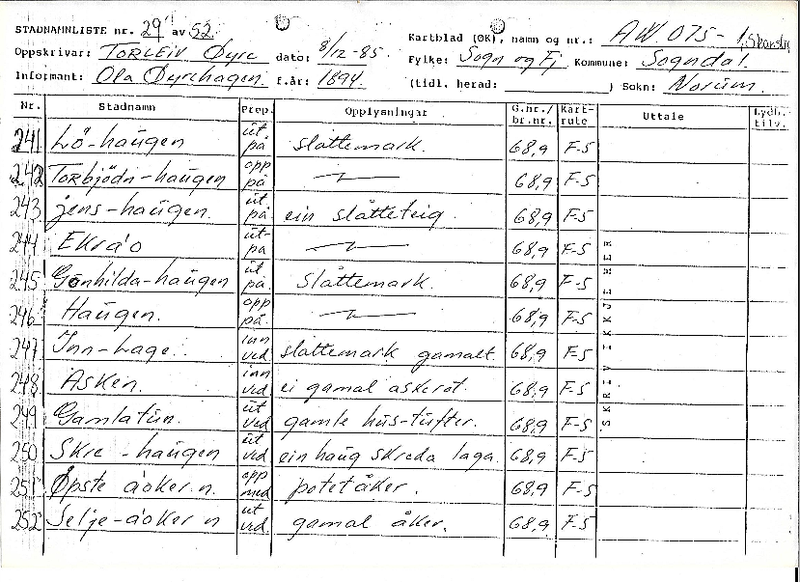 STADNAMNLISTE nr. 29 av 52
Oppskrivar: TORLEIV Øyre dato: 8/12-85.
Informant: Ola Øyrehagen. f.år: 1894.
Kartblad (ØK), namn og nr.: AW. 075-1,
Fylke: Sogn og Fj. Kommune: Sogndal.
(tidl. herad: ) Sokn: Norum.
Nr. Stadnamn Prep. Opplysningar G.nr./br.nr. Kart-rute Uttale Lydb.tilv.
241 Lö-haugen ut på slåttemark. 68,9 F-5
242 Torbjödn-haugen opp på —〃— 68,9 F-5
243 jens-haugen. ut på ein slåtteteig. 68,9 F-5
244 Ekráo ut- på —〃— 68,9 F-5
245 Gonhilda-haugen ut på. slåttemark. 68,9 F-5
246 Haugen. opp på. —〃— 68,9 F-5
247 Inn-Lage. inn ved slåttemark gamalt 68,9 F-5
248 Asken. inn ved ei gamal askerot. 68,9 F-5
249 Gamlatun. ut ved gamle hus-tufter. 68,9 F-5
250 Skre-haugen ut ved ein haug skreda laga. 68,9 F-5
251 Øpste áoker.n. opp med potetåker. 68,9 F-5
252 Selje-áoker n ut ved. gamal åker. 68,9 F-5
SKRIV IKKJE HER